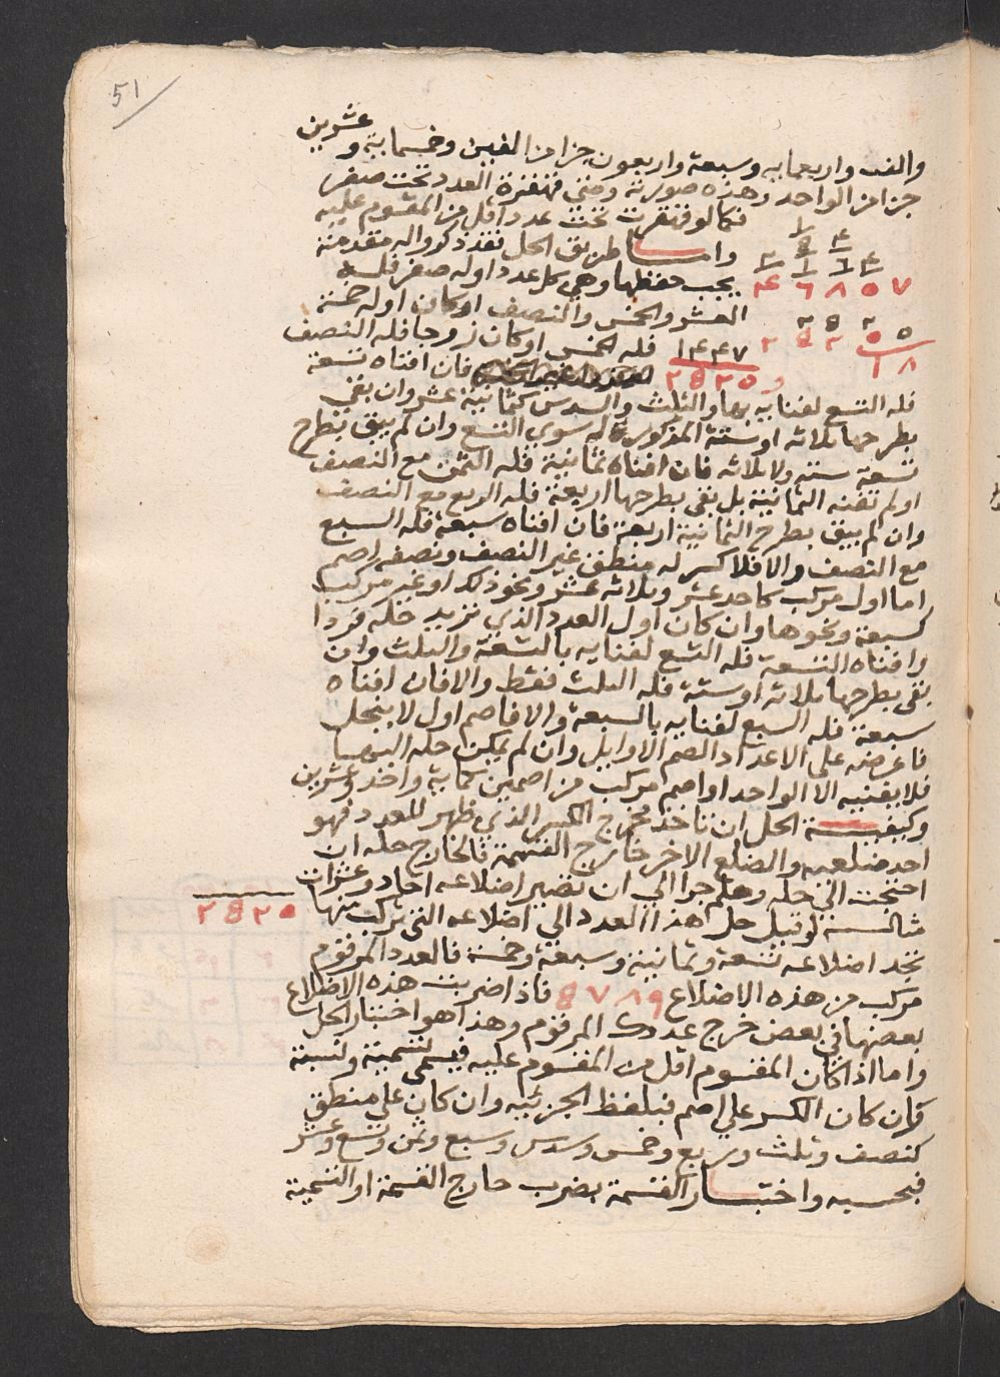 51
والف واربعمايه وسبعة واربعون جزا من الفين وخمسماية وعشرين
جزا من الواحد وهذه صورته ومتى قهقرة العدد تحت صفر
فكما لو قهقرت تحت عدد اقل من المقسوم عليه
واما طريق الحل فقد ذكروا له مقدمة
يجب حفظها وهي كل عدد اوله صفر فله
العشر والخمس والنصف او كان اوله خمسة
فله الخمس او كان زوجا فله النصف
١٤٤٧
٢٥٢٠
فان افناه تسعة
فله التسع لفنايه بها والثلث والسدس كثمانية عشر وان بقي
بطرحها ثلاثه او ستة المذكورة له سوي التسع وان لم يبق بطرح
تسعة ستة ولا ثلاثه فان افناه ثمانية فله الثمن مع النصف
او لم تفنه الثمانية بل بقي بطرحها اربعة فله الربع مع النصف
وان لم يبق بطرح الثمانية اربعة فان افناه سبعة فله السبع
مع النصف والا فلا كسر له منطق غير النصف ونصفه اصم
اما اول مركب كاحد عشر وثلاثه عشر ونحو ذلك او غير مركب
كسبعة ونحوها وان كان اول العدد الذي تريد حله فردا
وافناه التسعة فله التسع لفنايه بالتسعة والثلث وان
بقي بطرحها ثلاثه او ستة فله الثلث فقط والا فان افناه
سبعة فله السبع لفنايه بالسبعة والا فاصم اول لا ينحل
فاعرضه على الاعداد الصم الاوايل وان لم يمكن حله اليها
فلا يفنيه الا الواحد او اصم مركب من اصمين كماية واحد وعشرين
وكيفية الحل ان تاخذ مخرج الكسر الذي ظهر للعدد فهو
احد ضلعيه والضلع الاخر خارج القسمة فالخارج حله ان
احتجت الى حله وهلم جرا الى ان تصير اضلاعه احاد وعشرات
مثاله لو قيل حل هذا العدد الى اضلاعه التي تركب منها ٢٥٢٠
تجد اضلاعه تسعة وثمانية وسبعة وخمسة فالعدد المرقوم
مركب من هذه الاضلاع ٩ ٨ ٧ ٥ فاذا ضربت هذه الاضلاع
بعضها في بعض خرج عددك المرقوم وهذا هو اختبار الحل
واما اذا كان المقسوم اقل من المقسوم عليه فيسمى تسمية ونسبة
فان كان الكسر على اصم فبلفظ الجزئيه وان كان على منطق
كنصف وثلث وربع وخمس وسدس وسبع وثمن وتسع وعشر
فبحسبه واختبار القسمة بضرب خارج القسمة او التسمية